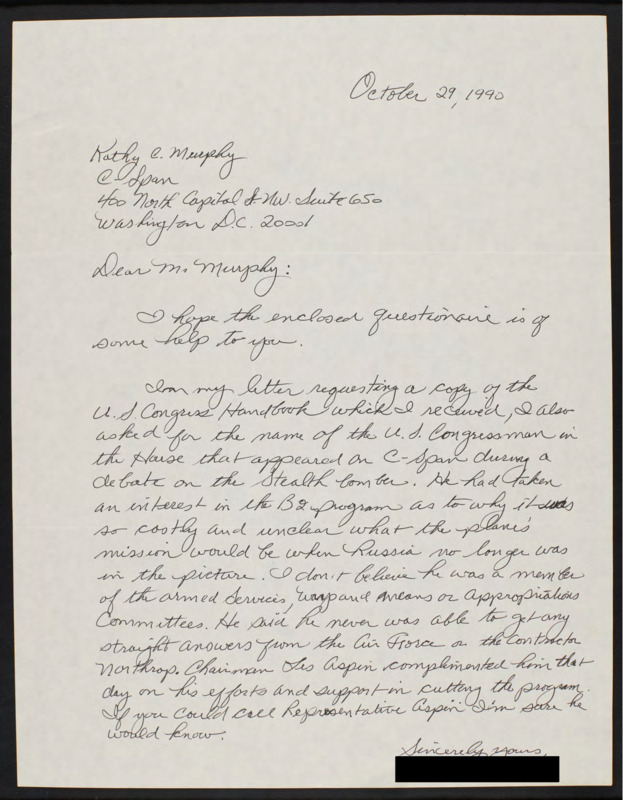 October 29, 1990
Kathy C. Murphy
C-Span
400 North Capital St. NW. Suite 650
Washington D.C. 20001
Dear Ms Murphy:
I hope the enclosed questionaire is of
some help to you.
In my letter requesting a copy of the
U.S. Congress Handbook which I received, I also
asked for the name of the U.S. Congressman in
the House that appeared on C-Span during a
debate on the Stealth bomber. He had taken
an interest in the B2 program as to why it was
so costly and unclear what the plane's
mission would be when Russia no longer was
in the picture. I don't believe he was a member
of the armed Services, Ways and Means or Appropriations
Committees. He said he never was able to get any
straight answers from the Air Force or the Contractor
Northrop. Chairman Les Aspin complimented him that
day on his efforts and support in cutting the program.
If you could call Representative Aspin I'm sure he
would know.
Sincerely yours,